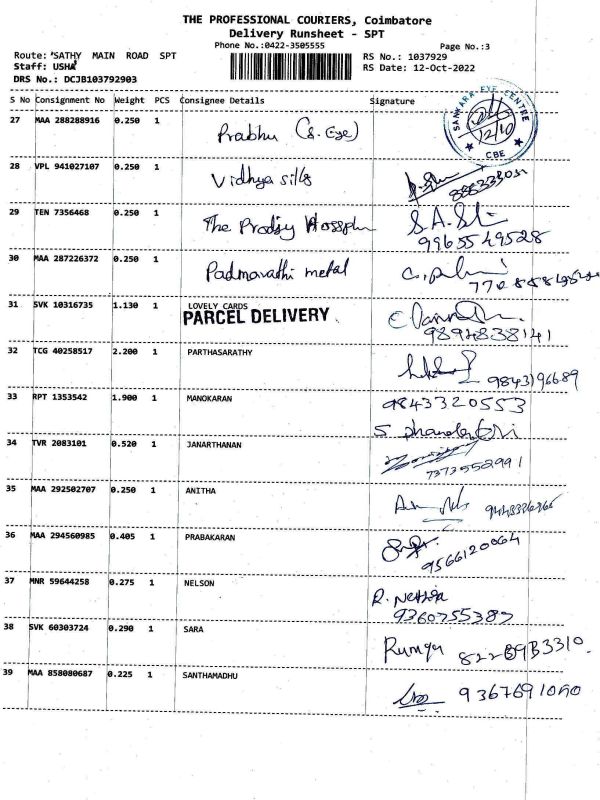 THE PROFESSIONAL COURIERS, Coimbatore
Delivery Runsheet - SPT
Phone No.:0422-3505555
Page No.:3
Route: SATHY MAIN ROAD SPT
RS No.: 1037929
Staff: USHA
RS Date: 12-Oct-2022
DRS No.: DCJB103792903
S No Consignment No Weight PCS Consignee Details Signature
SANKARA EYE CENTRE
12/10
CBE
27 MAA 288288916 0.250 1 Prabhu (S. Eye)
28 VPL 941027107 0.250 1 Vidhya silks
29 TEN 7356468 0.250 1 The Prodigy S.A.
9965549528
30 MAA 287226372 0.250 1 Padmavathi metal
31 SVK 10316735 1.130 1 LOVELY CARDS
PARCEL DELIVERY
9894838141
32 TCG 40258517 2.200 1 PARTHASARATHY
9843196689
33 RPT 1353542 1.900 1 MANOKARAN 9843320553
34 TVR 2083101 0.520 1 JANARTHANAN
7373552991
35 MAA 292502707 0.250 1 ANITHA
36 MAA 294560985 0.405 1 PRABAKARAN
9566120064
37 MNR 59644258 0.275 1 NELSON
9360755389
38 SVK 60303724 0.290 1 SARA Ramya
39 MAA 858080687 0.225 1 SANTHAMADHU